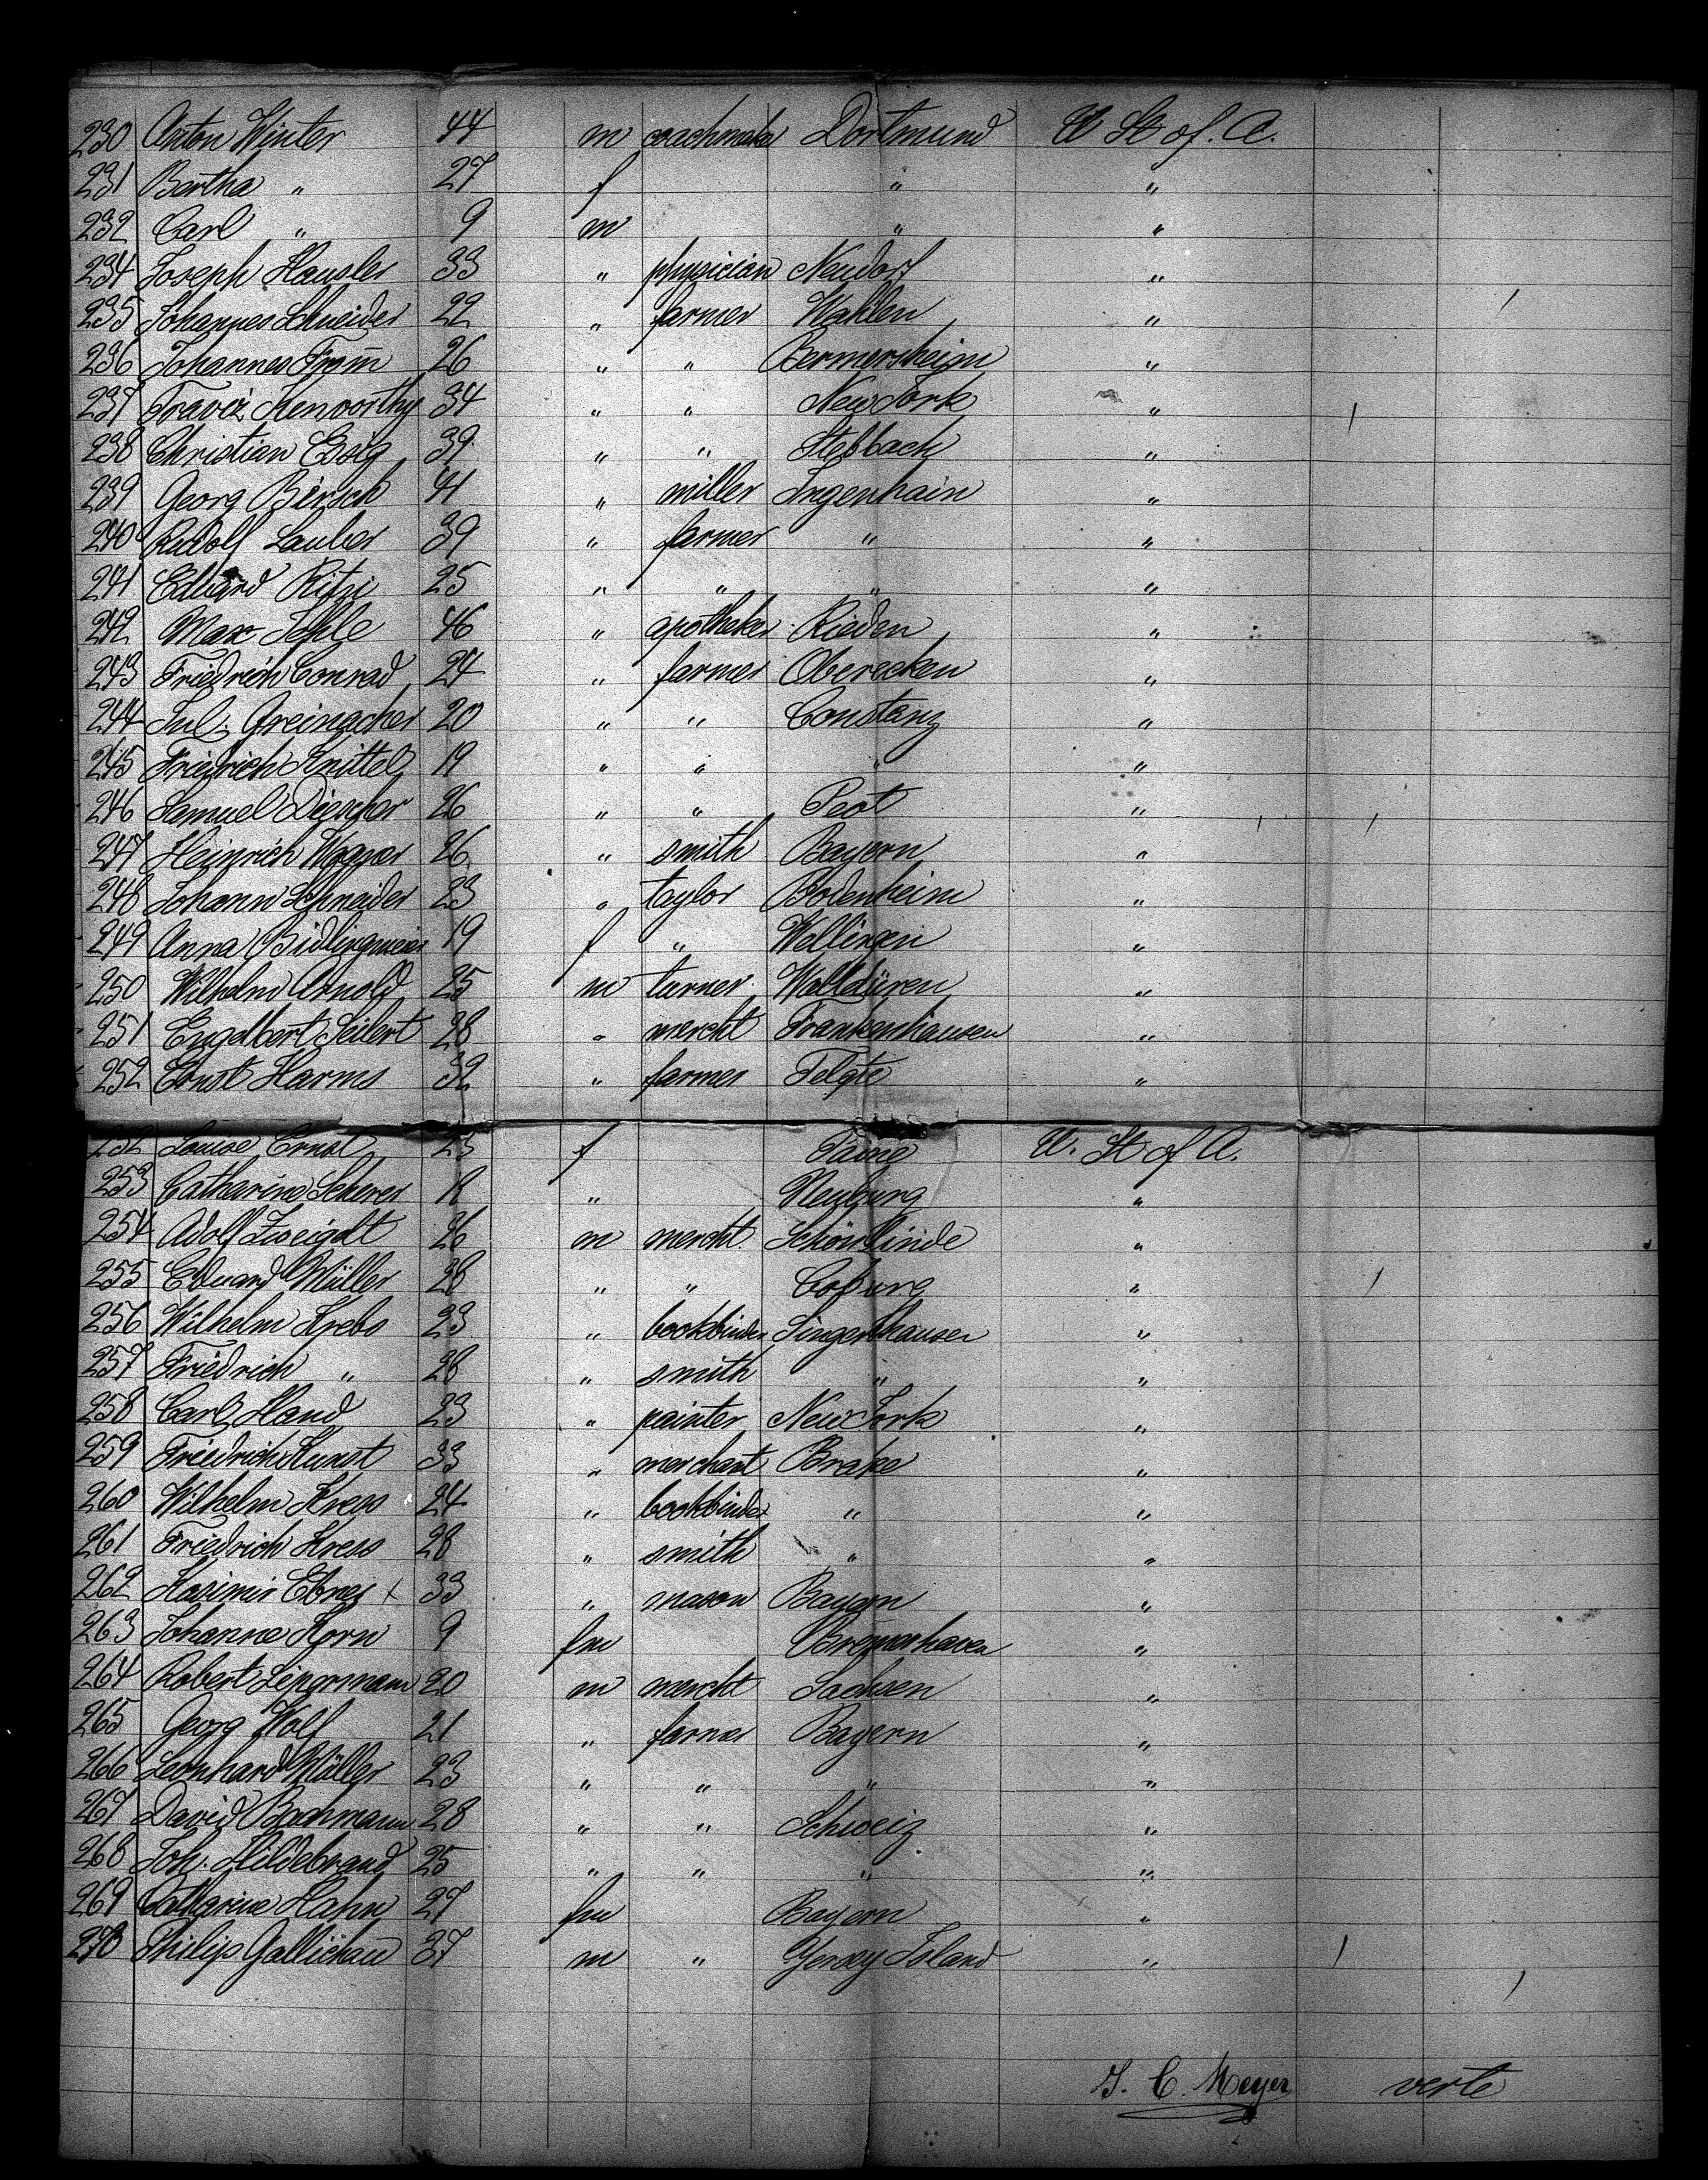 230 Anton Winter 44 m coachmaker Dortmund U St of. A.
231 Bertha " 27 f " "
232 Carl " 9 m " "
234 Joseph Hausler 33 " physician Neudorf "
235 Johannes Schneider 22 " farmer Wahlen "
236 Johannes Fram̄ 26 " " Bermersheim "
237 Kenworthy 34 " " New York "
238 Christian Essig 39 " " Stebbach "
239 Georg Birsch 41 " miller Ingenhain "
240 Rudolf Lauber 39 " farmer " "
241 Eduard Ritzi 25 " " " "
242 Max Sohle 46 " apotheker Rieden "
243 Friedrich Conrad 24 " farmer Oberecken "
244 Jul. Greinacher 20 " " Constanz "
245 Friedrich Knittel 19 " " " "
246 Samuel Diescher 26 " " Pest "
247 Heinrich Wagner 26 " smith Bayern "
248 Johann Schneider 23 " taylor Bodenheim "
249 Anna Bidlingmeier 19 f " Wellingen "
250 Wilhelm Arnold 25 m turner Walldüren "
251 Engelbert Seilert 28 " mercht Frankenhausen "
252 Ernst Harms 32 " farmer Telgte "
252 Louise Ernst 23 f U. St of A.
253 Catharine Scherer 19 " Neuburg "
254 Adolf Zweigelt 26 m mercht. Schönlinde "
255 Eduard Müller 28 " " Coburg "
256 Wilhelm Krebs 23 " bookbinder Singerhausen "
257 Friedrich " 28 " smith " "
258 Carl Hand 23 " painter New York "
259 Friedrich Kunst 33 " merchant Brake "
260 Wilhelm Kress 24 " bookbinder " "
261 Friedrich Kress 28 " smith " "
262 Kasimir Ebner x 33 " mason Bayern "
263 Johanne Korn 9 fm Bremerhaven "
264 Robert 20 m mercht Sachsen "
265 Georg Wolf 21 " farmer Bayern "
266 Leonhard Müller 23 " " " "
267 David Bachmann 28 " " Schweiz "
268 Joh. Hildebrand 25 " " " "
269 Catharine Hahn 27 fm Bayern "
270 Philip Gallichau 37 m " Yersey Island "
J. C. Meyer verte